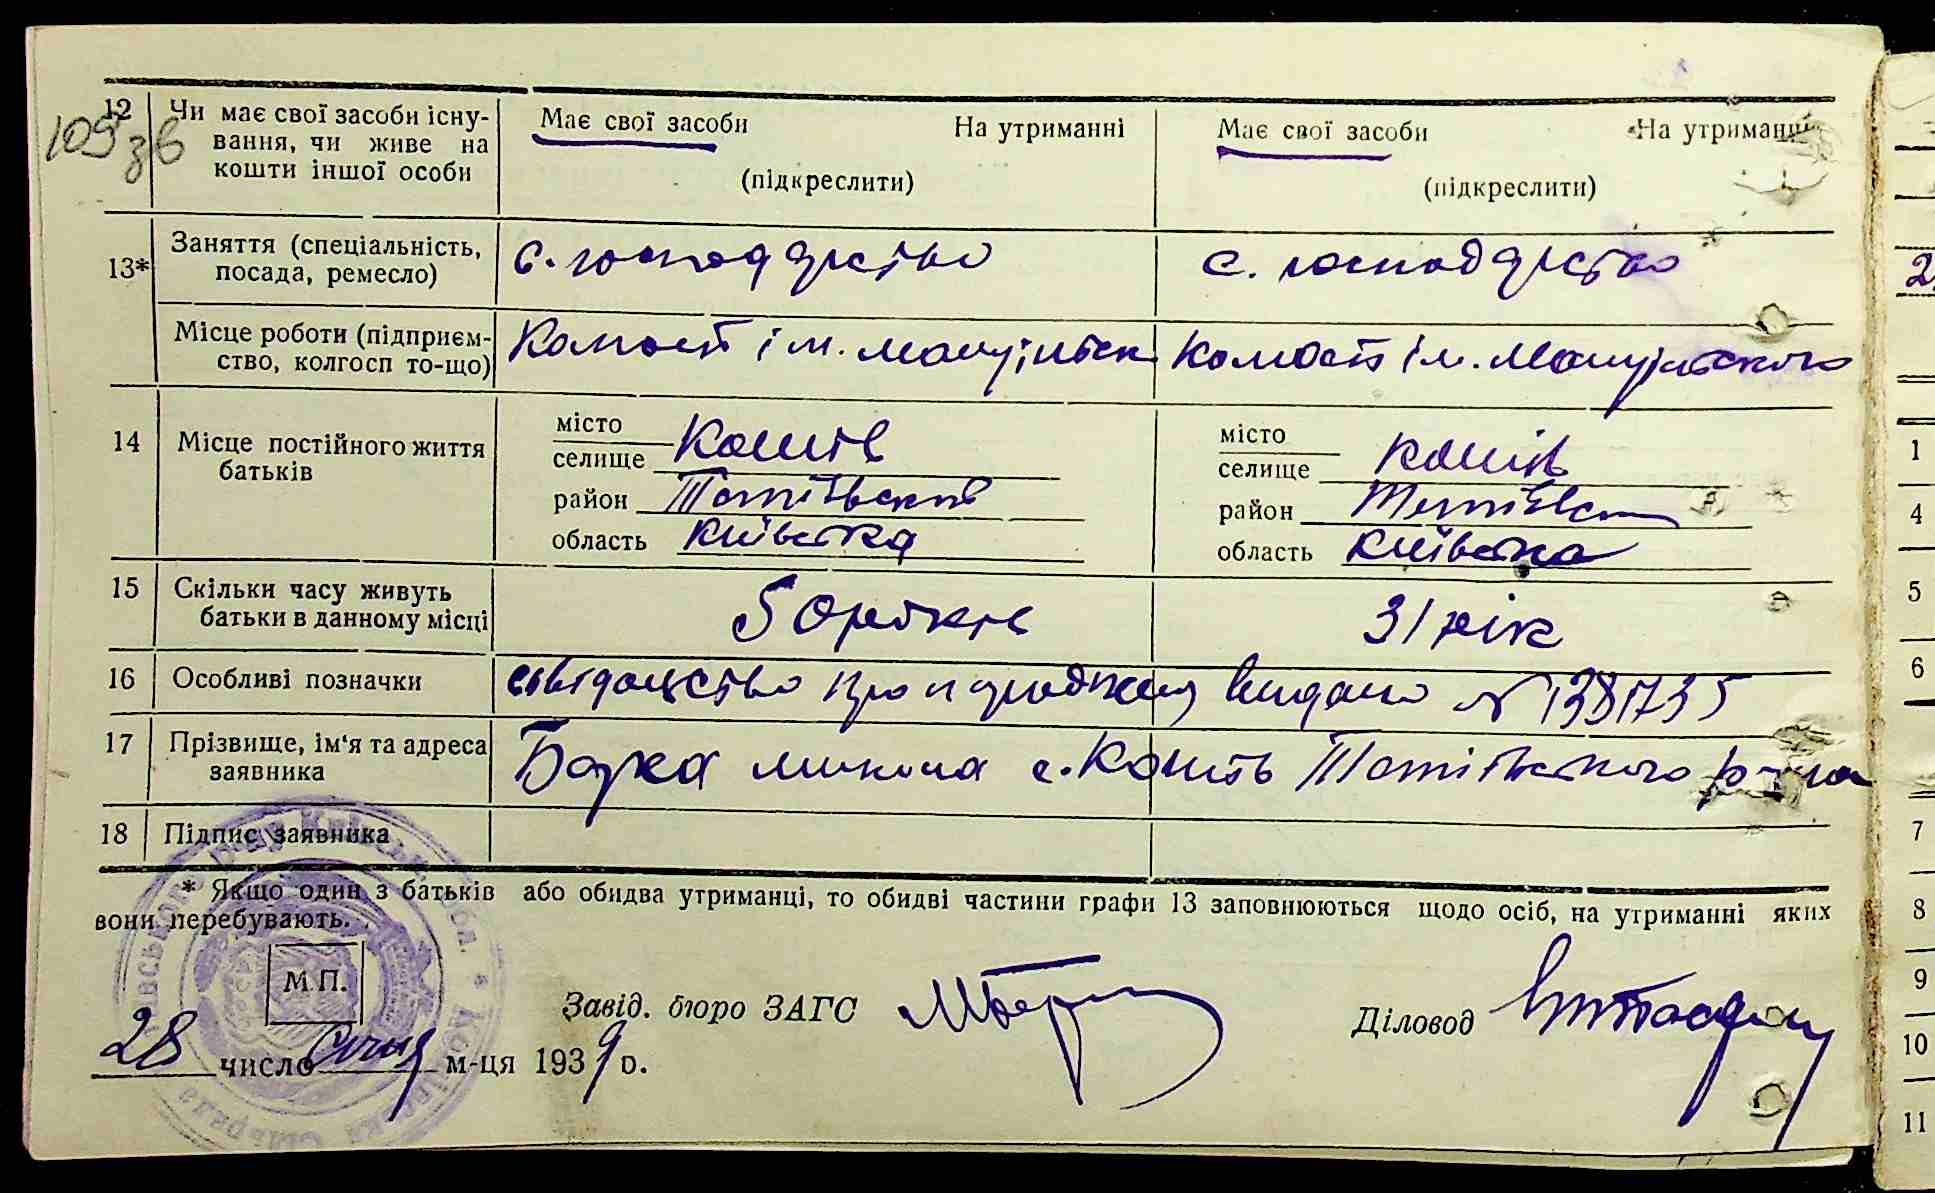 109 зв
12 Чи має свої засоби існу- Має свої засоби На утриманні Має свої засоби На утриманні
вання, чи живе на
кошти іншої особи (підкреслити) (підкреслити)
13* Заняття (спеціальність, с. господарство с. господарство
посада, ремесло)
Місце роботи (підприєм- ім. ім. Мануільського
ство, колгосп то-що)
14 Місце постійного життя місто місто
батьків селище Кошів селище Кошів
район Тетіївський район
область Київська область Київська
15 Скільки часу живуть 50 років 31 рік
батьки в данному місці
16 Особливі позначки свідоцтво про народження видано № 138735
17 Прізвище, ім'я та адреса Микита с. Кошів Тетіївського району
заявника
18 Підпис заявника
* Якщо один з батьків або обидва утриманці, то обидві частини графи 13 заповнюються щодо осіб, на утриманні яких
вони перебувають.
М.П.
Завід. бюро ЗАГС
Діловод
28 число Січня м-ця 1939 р.
2
1
4
5
6
7
8
9
10
11